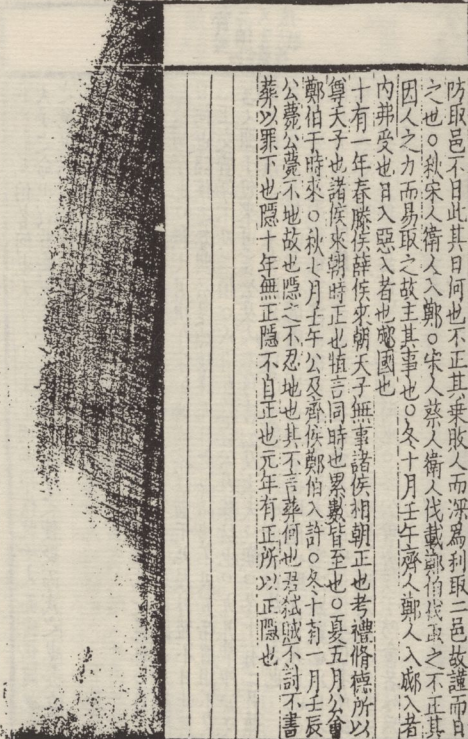 防取邑不日此其日何也不正其乗敗人而深爲利取二邑故謹而日
之也○秋宋人衛人入鄭○宋人蔡人衛人伐載鄭伯伐取之不正其
因人之力而易取之故主其事也○冬十月壬午齊人鄭人入郕入者
内弗受也日入惡入者也郕國也
十有一年春滕侯薛侯來朝天子無事諸侯相朝正也考禮脩德所以
尊天子也諸侯來朝時正也犆言同時也累數皆至也○夏五月公會
鄭伯于時來○秋七月壬午公及齊侯鄭伯入許○冬十有一月壬辰
公薨公薨不地故也隱之不忍地也其不言葬何也君弑賊不討不書
葬以罪下也隱十年無正隱不自正也元年有正所以正隱也